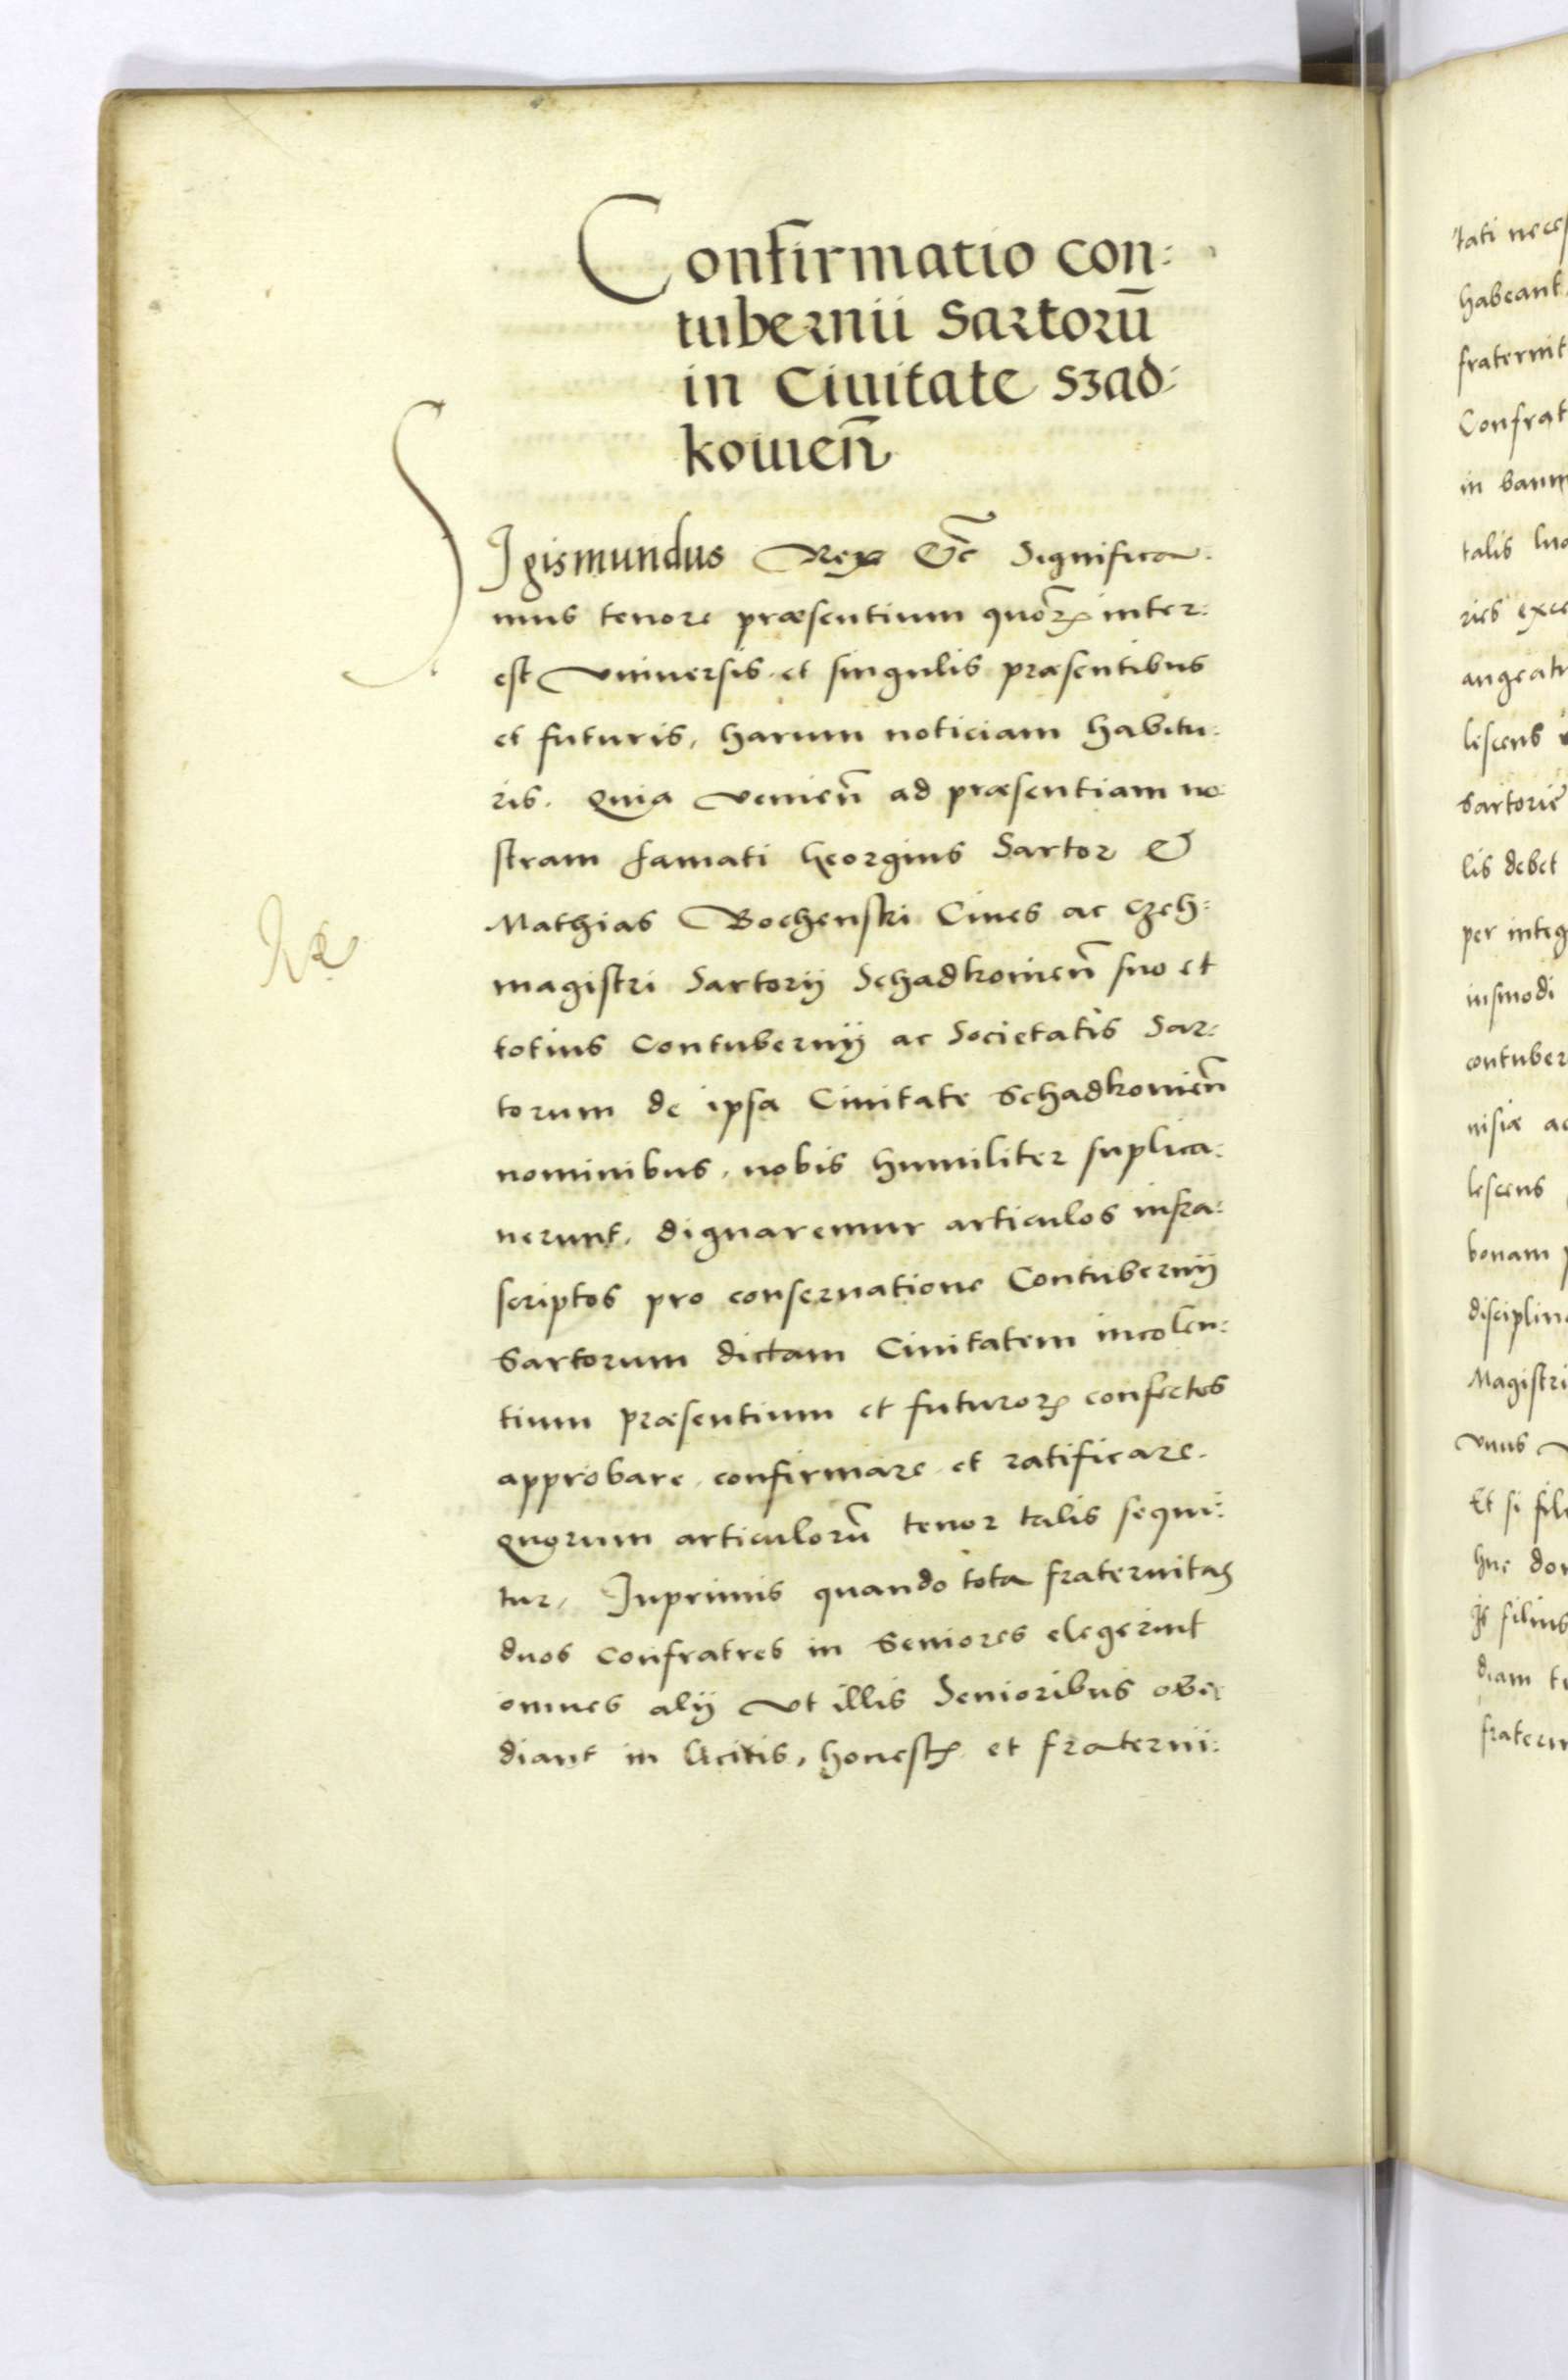 Confirmatio con:
tubernii Sartorū
in Ciuitate Szad:
kouien̄
SIgismundus Rex &c̄ Significa
mus tenore præsentium quoꝝ inter:
est Vniuersis et singulis præsentibus
et futuris, harum noticiam habitu:
ris. Quia venien̄ ad præsentiam no
stram famati Georgius Sartor &
Mathias Bochenski Ciues ac Czeh:
magistri Sartorij Schadkouien̄ suo et
totius Contubernij ac Societatis Sar:
torum de ipsa Ciuitate Schadkouien̄
nominibus, nobis humiliter suplica:
uerunt, dignaremur articulos infra:
scriptos pro conseruatione Contubernij
Sartorum dictam Ciuitatem incolen:
tium præsentium et futuroꝝ confectos
approbare, confirmare et ratificare.
Quorum articulorū tenor talis sequi:
tur, Inprimis quando tota fraternitas
duos confratres in Seniores elegerint
omnes alij Vt illis Senioribus obe
diant in licitis, honestꝭ et fraterni:
tati
habeant
in
talis
lis debet
per
bonam
Magistri
Et si